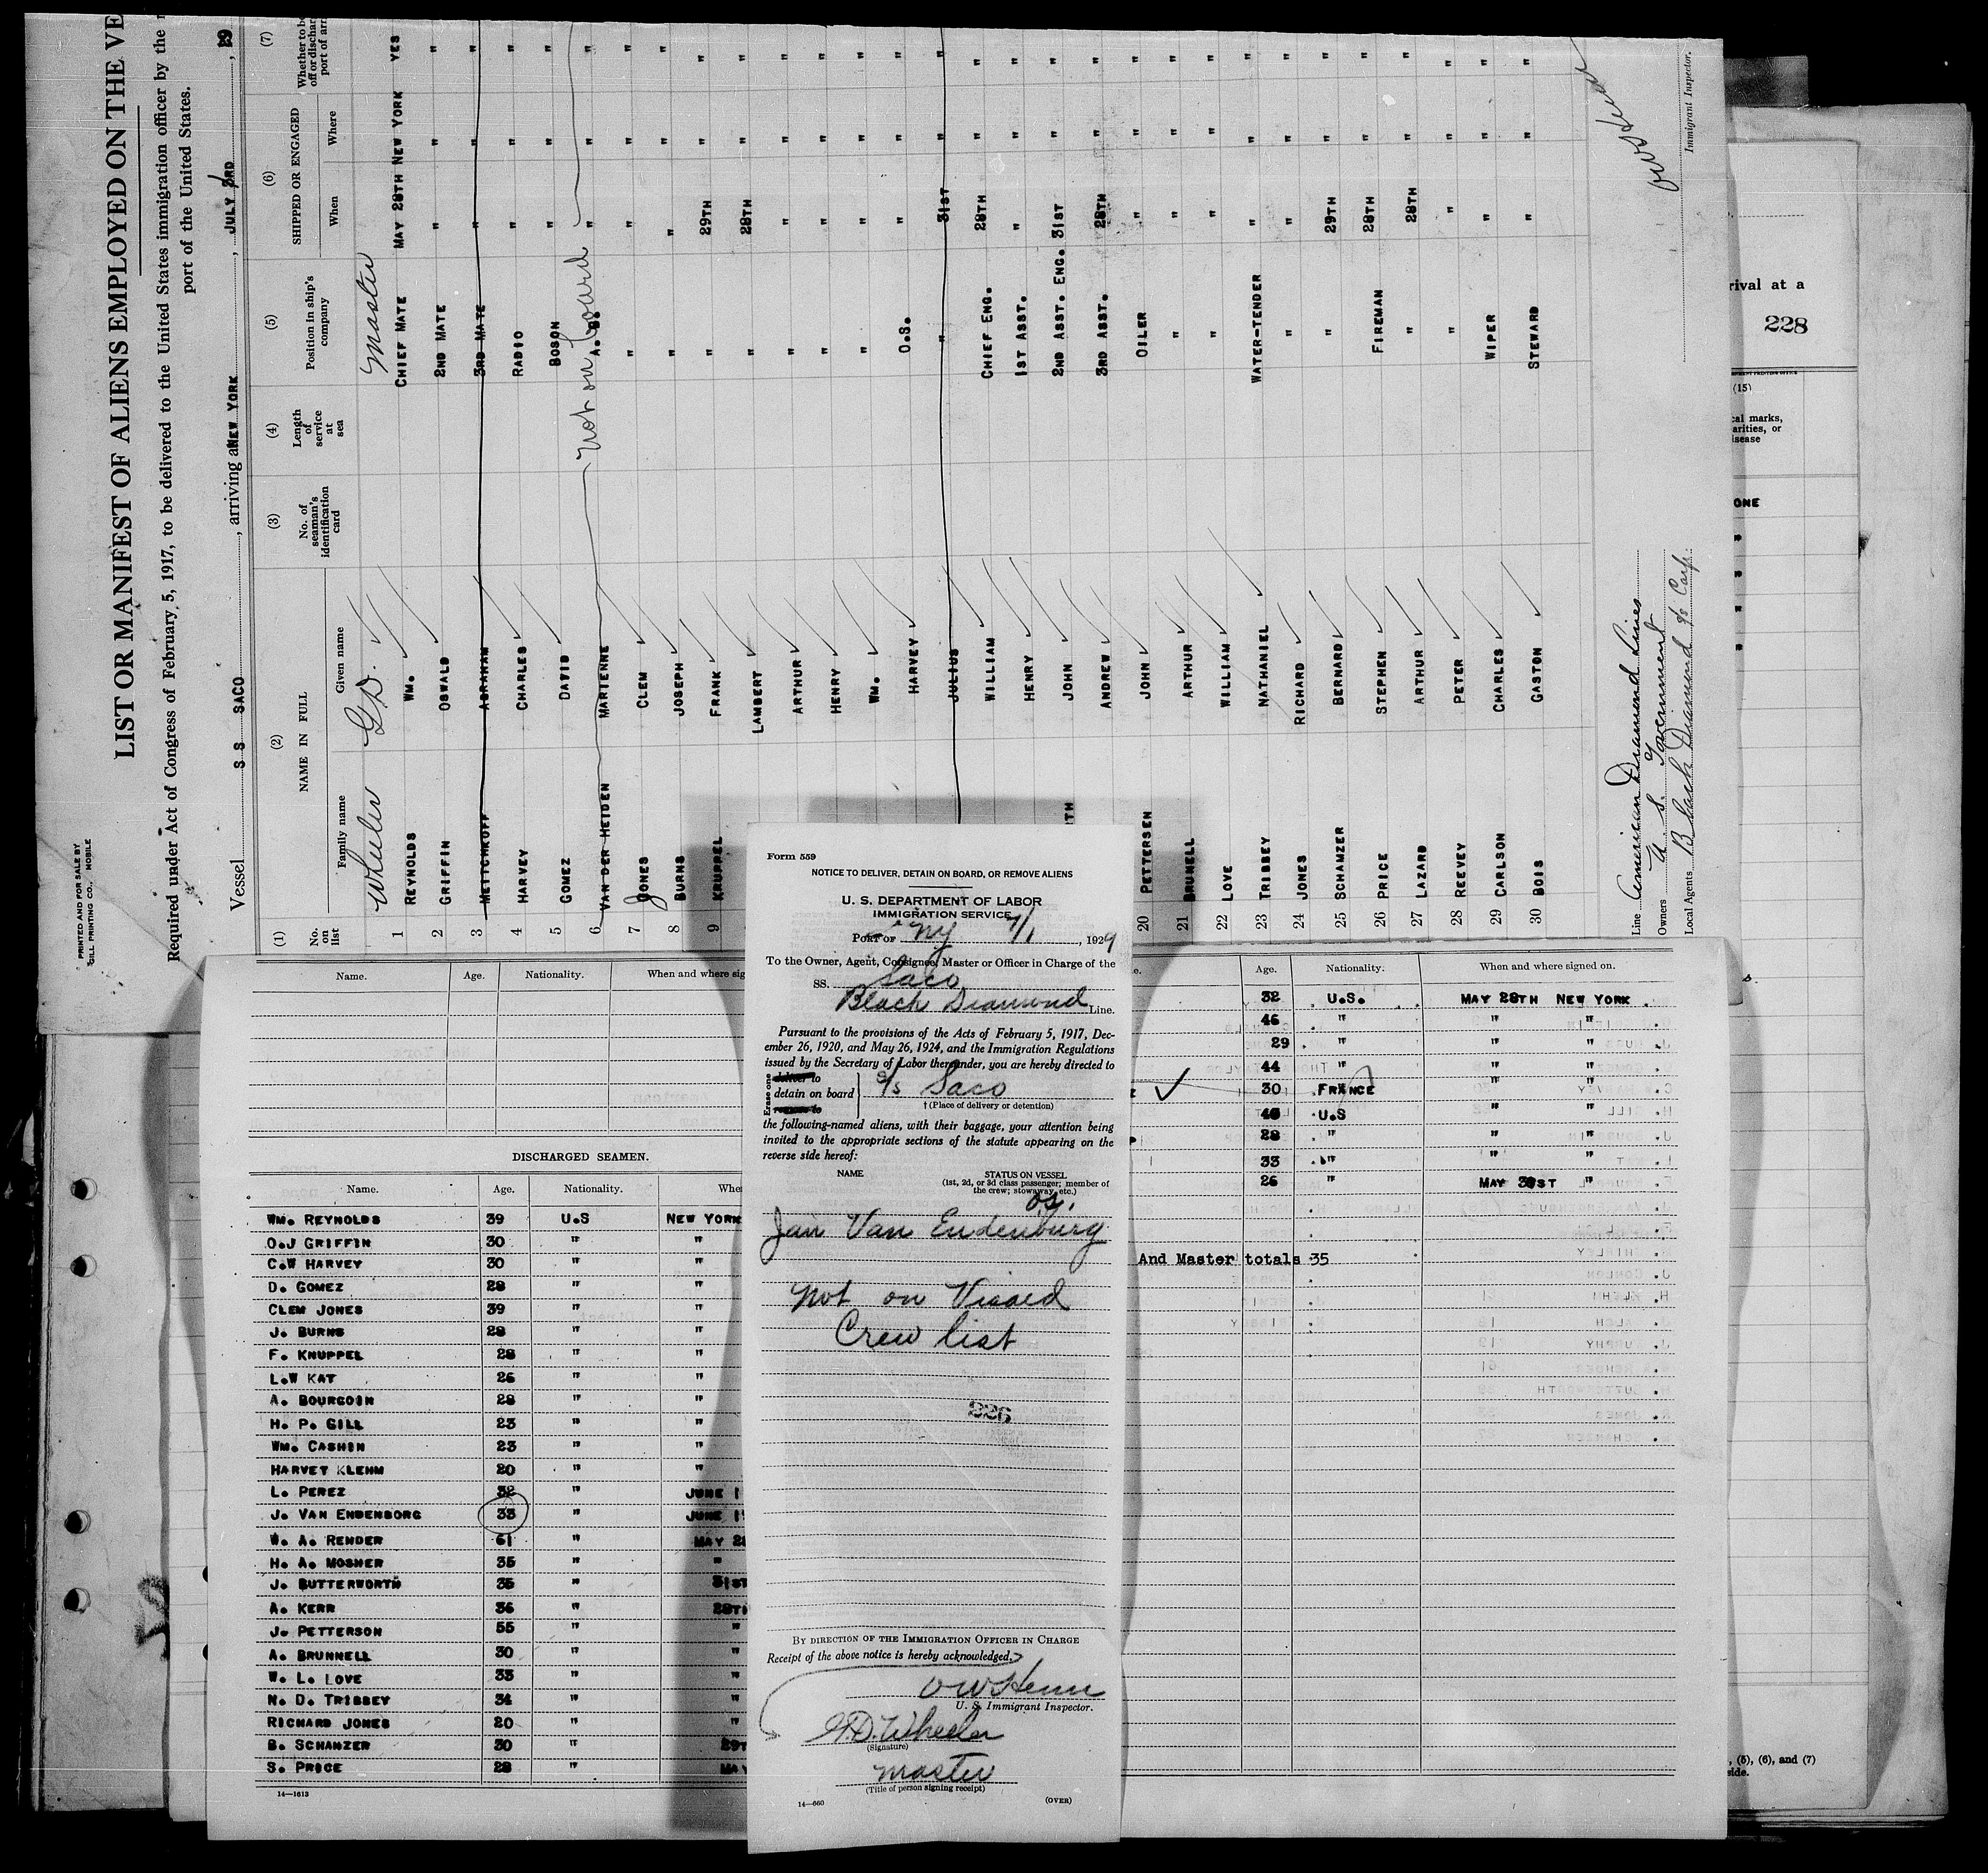 PRINTED AND FOR SALE BY
GILL PRINTING CO., MOBILE
LIST OR MANIFEST OF ALIENS EMPLOYED ON THE VE
Required under Act of Congress of February 5, 1917, to be delivered to the United States immigration officer by the
port of the United States.
Vessel S S SACO, arriving at NEW YORK, JULY 3RD, 29
(1) (2) (3) (4) (5) (6) (7)
No. on list NAME IN FULL No. of seaman's identification card Length of service at sea Position in ship's company SHIPPED OR ENGAGED Whether to be
off or discharg
port of arri
Family name Given name When Where
Wheeler G.D. Master
1 REYNOLDS WM. CHIEF MATE MAY 28TH NEW YORK YES
2 GRIFFIN OSWALD 2ND MATE " " "
3 METTCHKOFF ABRAHAM 3RD MATE " " "
4 HARVEY CHARLES RADIO " " "
5 GOMEZ DAVID BOSON " " "
6 VAN DER HEIDEN MARIENNE A.B. " " "
not on board
7 JONES CLEM " " " "
8 BURNS JOSEPH " " " "
9 KRUPPEL FRANK " 29TH " "
LAMBERT " 28TH " "
ARTHUR " " " "
HENRY " " " "
WM. " " " "
HARVEY O.S. " " "
JULIUS " 31ST " "
WILLIAM CHIEF ENG. 28TH " "
HENRY 1ST ASST. " " "
TH JOHN 2ND ASST. ENG. 31ST " "
ANDREW 3RD ASST. 28TH " "
20 PETTERSEN JOHN OILER " " "
21 BRUNELL ARTHUR " " " "
22 LOVE WILLIAM " " " "
23 TRIBBEY NATHANIEL WATER-TENDER " " "
24 JONES RICHARD " " " "
25 SCHAMZER BERNARD " 29TH " "
26 PRICE STEPHEN FIREMAN 28TH " "
27 LAZARD ARTHUR " 28TH " "
28 REEVEY PETER " " " "
29 CARLSON CHARLES WIPER " " "
30 BOIS GASTON STEWARD " " "
Line American Diamond Lines
Owners U. S. Government
Local Agents Black Diamond Corp.
OWHenn
Immigrant Inspector.
rival at a
228
(15)
cal marks,
arities, or
isease
ONE
"
"
"
"
"
, (5), (6), and (7)
side.
Name. Age. Nationality. When and where sig
DISCHARGED SEAMEN.
Name. Age. Nationality. Whe
WM. REYNOLDS 39 U.S NEW YORK
O.J GRIFFIN 30 " "
C.W HARVEY 30 " "
D. GOMEZ 28 " "
CLEM JONES 39 " "
J. BURNS 28 " "
F. KNUPPEL 28 " "
L.W KAT 26 " "
A. BOURGOIN 28 " "
H. P. GILL 23 " "
WM. CASHIN 23 " "
HARVEY KLEHM 20 " "
L. PEREZ 32 " JUNE 1
J. VAN ENDENBORG 33 " JUNE 1
W. A. RENDER 61 " MAY 28
H. A. MOSHER 35 " "
J. BUTTERWORTH 35 " 31ST
A. KERR 36 " 28TH
J. PETTERSON 55 " "
A. BRUNNELL 30 " "
W. L. LOVE 33 " "
N. D. TRIBBEY 34 " "
RICHARD JONES 20 " "
B. SCHANZER 30 " 29T
S. PRICE 28 " MAY
14—1613
Form 559
NOTICE TO DELIVER, DETAIN ON BOARD, OR REMOVE ALIENS
U. S. DEPARTMENT OF LABOR
IMMIGRATION SERVICE
PORT OF NY 7/1, 1929
To the Owner, Agent, Consignee, Master or Officer in Charge of the
SS. Saco
Black Diamond Line.
Pursuant to the provisions of the Acts of February 5, 1917, Dec-
ember 26, 1920, and May 26, 1924, and the Immigration Regulations
issued by the Secretary of Labor thereunder, you are hereby directed to
Erase one
deliver to
detain on board S/S Saco
remove to
† (Place of delivery or detention)
the following-named aliens, with their baggage, your attention being
invited to the appropriate sections of the statute appearing on the
reverse side hereof:
NAME STATUS ON VESSEL
(1st, 2d, or 3d class passenger; member of
the crew; stowaway, etc.)
O.S.
Jan Van Endenburg
not on Visaed
Crew list
226
BY DIRECTION OF THE IMMIGRATION OFFICER IN CHARGE
Receipt of the above notice is hereby acknowledged.
OWHenn
U. S. Immigrant Inspector.
G.D. Wheeler
(Signature)
Master
(Title of person signing receipt)
14—660 (OVER)
e. Age. Nationality. When and where signed on.
32 U.S. MAY 28TH NEW YORK
46 " " "
29 " " "
44 " " "
E 30 FRANCE " "
45 U.S " "
28 " " "
33 " " "
26 " MAY 31ST "
And Master totals 35